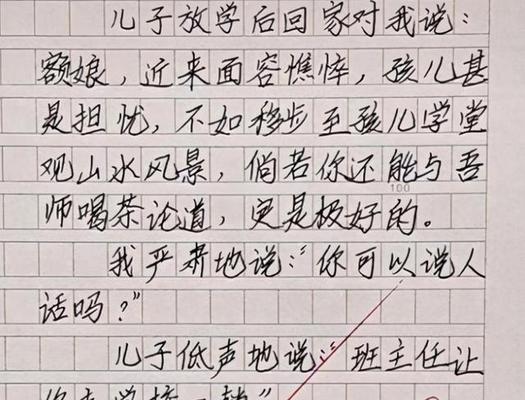 儿子放学后回家对我说：
额娘，近来面容憔悴，孩儿甚
是担忧，不如移步至孩儿学堂
观山水风景，倘若你还能与吾
100
师喝茶论道，更是极好的。
我严肃地说：“你可以说人
话吗？”
儿子低声地说：“班主任让